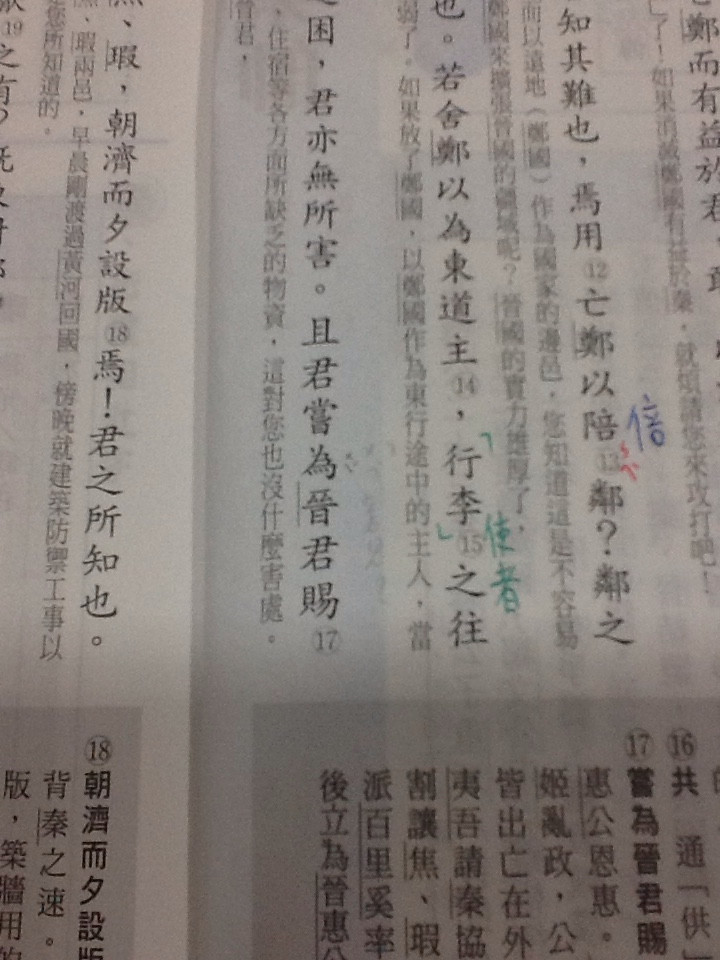 鄭而有益於君
了！如果消滅鄭國有益於秦，就煩請您來攻打吧！
知其難也，焉用⑫亡鄭以陪⑬鄰？鄰之
倍
而以遠地（鄭國）作為國家的邊邑，您知道這是不容易
鄭國來擴張晉國的領域呢？晉國的實力雄厚了，
也。若舍鄭以為東道主⑭，行李⑮之往
使者
弱了。如果放了鄭國，以鄭國作為東行途中的主人，當
之困，君亦無所害。且君嘗為晉君賜⑰
、住宿等各方面所缺乏的物資，這對您也沒什麼害處。
晉君，
焦、瑕，朝濟而夕設版⑱焉！君之所知也。
焦、瑕兩邑，早晨剛渡過黃河回國，傍晚就建築防禦工事以
您所知道的。
⑲之有？既
⑯共 通「供」
⑰嘗為晉君賜
惠公恩惠。
姬亂政，公
皆出亡在外
夷吾請秦協
割讓焦、瑕
派百里奚率
後立為晉惠公
⑱朝濟而夕設版
背秦之速。
版，築牆用的